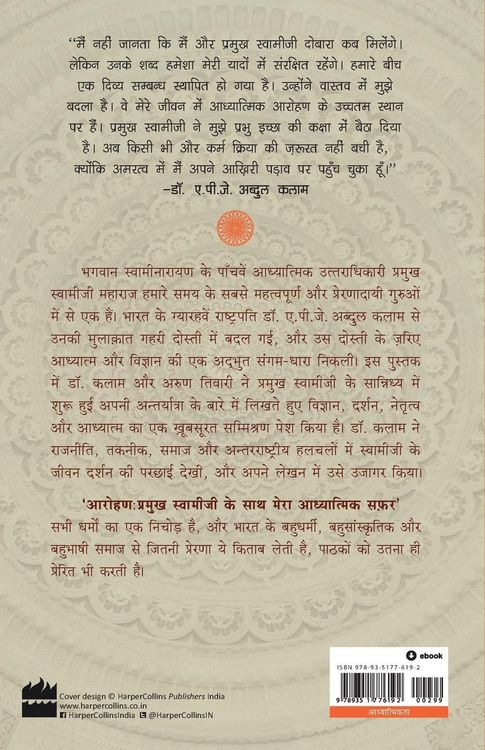 “मैं नहीं जानता कि मैं और प्रमुख स्वामीजी दोबारा कब मिलेंगे।
लेकिन उनके शब्द हमेशा मेरी यादों में संरक्षित रहेंगे। हमारे बीच
एक दिव्य सम्बन्ध स्थापित हो गया है। उन्होंने वास्तव में मुझे
बदला है। वे मेरे जीवन में आध्यात्मिक आरोहण के उच्चतम स्थान
पर हैं। प्रमुख स्वामीजी ने मुझे प्रभु इच्छा की कक्षा में बैठा दिया
है। अब किसी भी और कर्म क्रिया की ज़रूरत नहीं बची है,
क्योंकि अमरत्व में मैं अपने आख़िरी पड़ाव पर पहुँच चुका हूँ।”
–डॉ. ए.पी.जे. अब्दुल कलाम
भगवान स्वामीनारायण के पाँचवें आध्यात्मिक उत्तराधिकारी प्रमुख
स्वामीजी महाराज हमारे समय के सबसे महत्वपूर्ण और प्रेरणादायी गुरुओं
में से एक हैं। भारत के ग्यारहवें राष्ट्रपति डॉ. ए.पी.जे. अब्दुल कलाम से
उनकी मुलाक़ात गहरी दोस्ती में बदल गई, और उस दोस्ती के ज़रिए
आध्यात्म और विज्ञान की एक अद्भुत संगम-धारा निकली। इस पुस्तक
में डॉ. कलाम और अरुण तिवारी ने प्रमुख स्वामीजी के सान्निध्य में
शुरू हुई अपनी अन्तर्यात्रा के बारे में लिखते हुए विज्ञान, दर्शन, नेतृत्व
और आध्यात्म का एक ख़ूबसूरत सम्मिश्रण पेश किया है। डॉ. कलाम ने
राजनीति, तकनीक, समाज और अन्तरराष्ट्रीय हलचलों में स्वामीजी के
जीवन दर्शन की परछाई देखी, और अपने लेखन में उसे उजागर किया।
‘आरोहण:प्रमुख स्वामीजी के साथ मेरा आध्यात्मिक सफ़र’
सभी धर्मों का एक निचोड़ है, और भारत के बहुधर्मी, बहुसांस्कृतिक और
बहुभाषी समाज से जितनी प्रेरणा ये किताब लेती है, पाठकों को उतना ही
प्रेरित भी करती है।
ebook
ISBN 978-93-5177-619-2
9 789351 776192
00299
आध्यात्मिकता
Cover design © HarperCollins Publishers India
www.harpercollins.co.in
HarperCollinsIndia @HarperCollinsIN